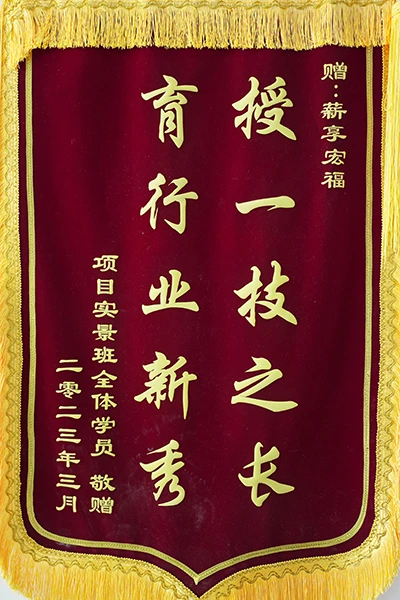 赠：薪享宏福
授一技之长
育行业新秀
项目实景班全体学员 敬赠
二零二三年三月